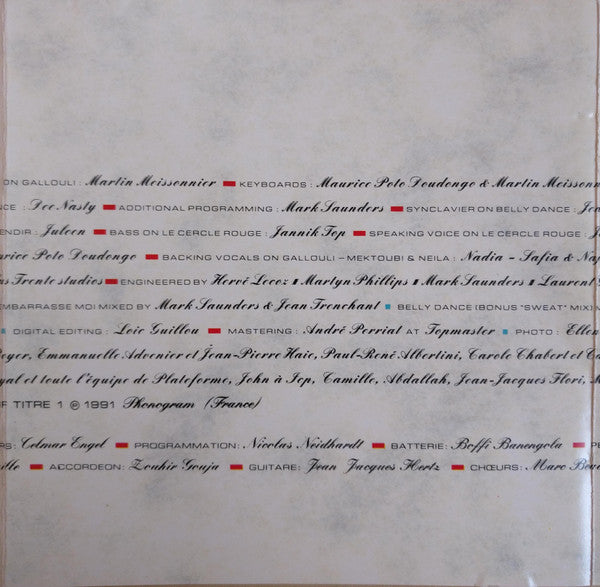 ON GALLOULI : Martin Meissonnier ■ KEYBOARDS : Maurice Poto Doudongo & Martin Meissonn
NCE : Dee Nasty ■ ADDITIONAL PROGRAMMING : Mark Saunders ■ SYNCLAVIER ON BELLY DANCE : Jea
ENDIR : Juleen ■ BASS ON LE CERCLE ROUGE : Jannik Top ■ SPEAKING VOICE ON LE CERCLE ROUGE : J
urice Poto Doudongo ■ BACKING VOCALS ON GALLOULI - MEKTOUBI & NEILA : Nadia - Safia & Na
us Trente studios ■ ENGINEERED BY Hervé Lecoz ■ Martyn Phillips ■ Mark Saunders ■ Laurent G
EMBARRASSE MOI MIXED BY Mark Saunders & Jean Trenchant ■ BELLY DANCE (BONUS "SWEAT" MIX) M
■ DIGITAL EDITING : Loïc Guillou ■ MASTERING : André Perriat AT Topmaster ■ PHOTO : Ellen
oyer, Emmanuelle Advenier et Jean-Pierre Haie, Paul-René Albertini, Carole Chabert et Ca
yal et toute l'équipe de Plateforme, John à Icp, Camille, Abdallah, Jean-Jacques Flori, M
UF TITRE 1 ℗ 1991 Phonogram (France)
RS : Celmar Engel ■ PROGRAMMATION : Nicolas Neidhardt ■ BATTERIE : Boffi Banengola ■ PE
lle ■ ACCORDEON : Zouhir Gouja ■ GUITARE : Jean Jacques Hertz ■ CHŒURS : Marc Bou